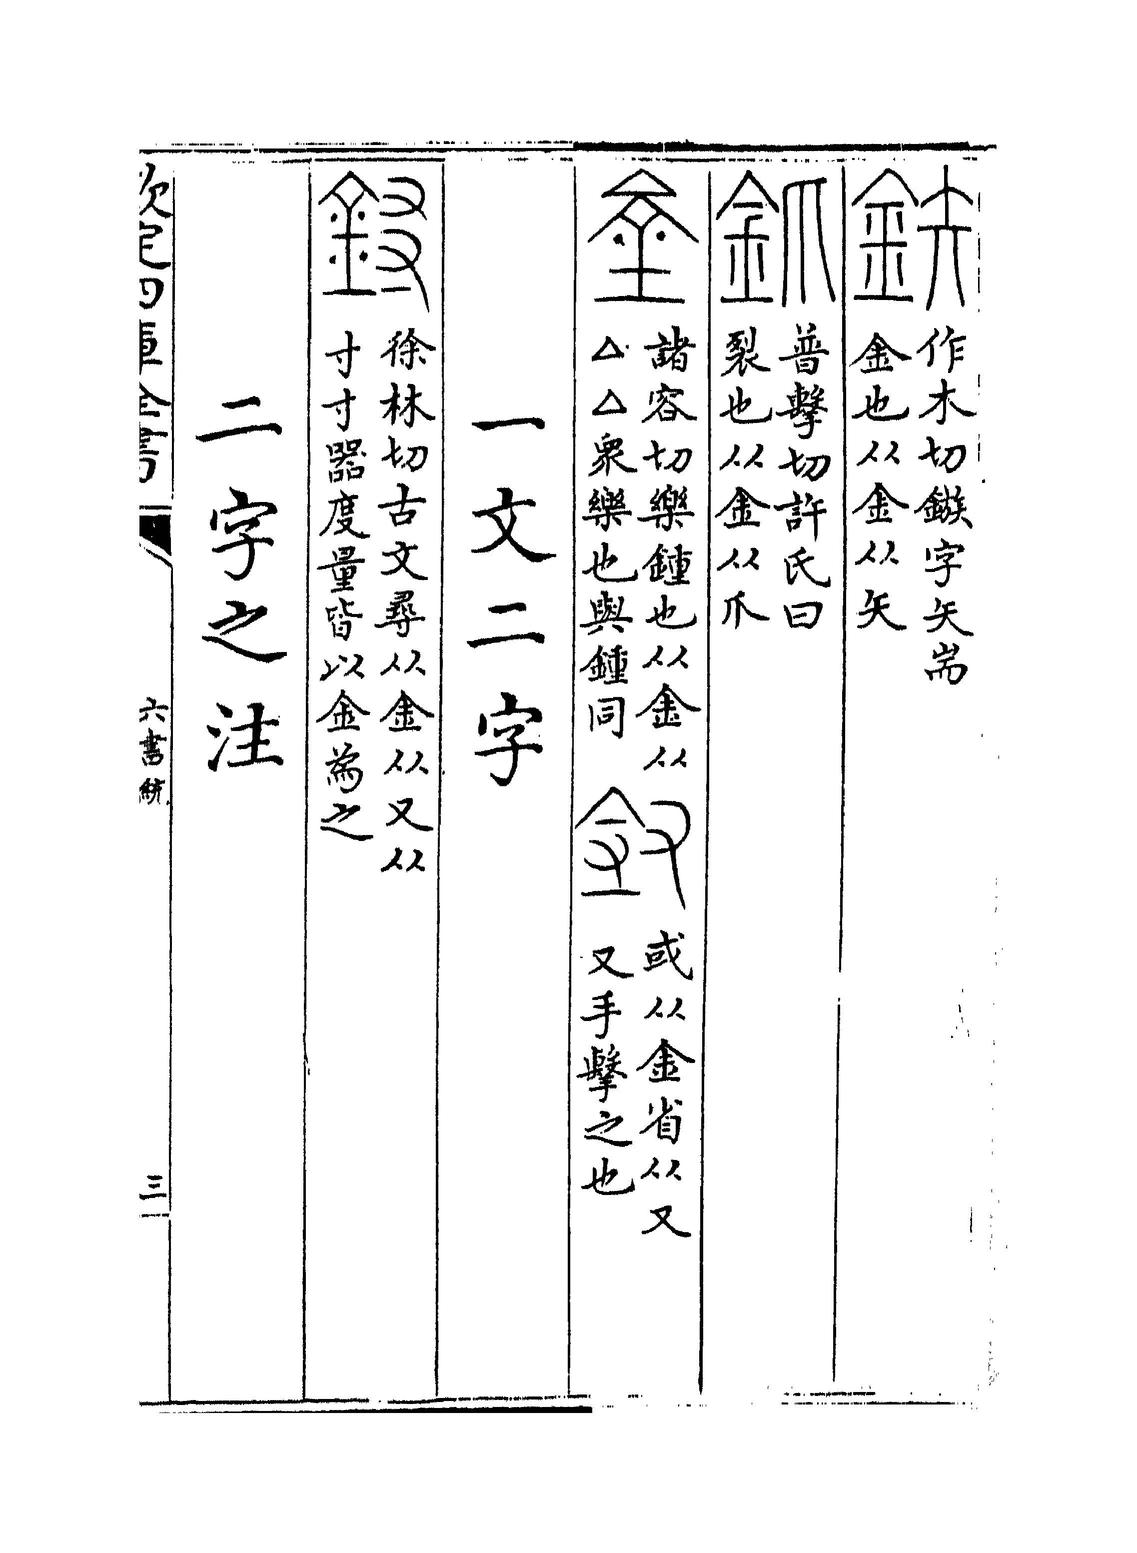 鉃
作木切鏃字矢耑
金也从金从矢
釽
普擊切許氏曰
裂也从金从爪
諸容切樂鍾也从金从
亼亼衆樂也與鍾同
或从金省从又
又手擊之也
一文二字
徐林切古文尋从金从又从
寸寸器度量皆以金為之
二字之注
欽定四庫全書
六書統
三